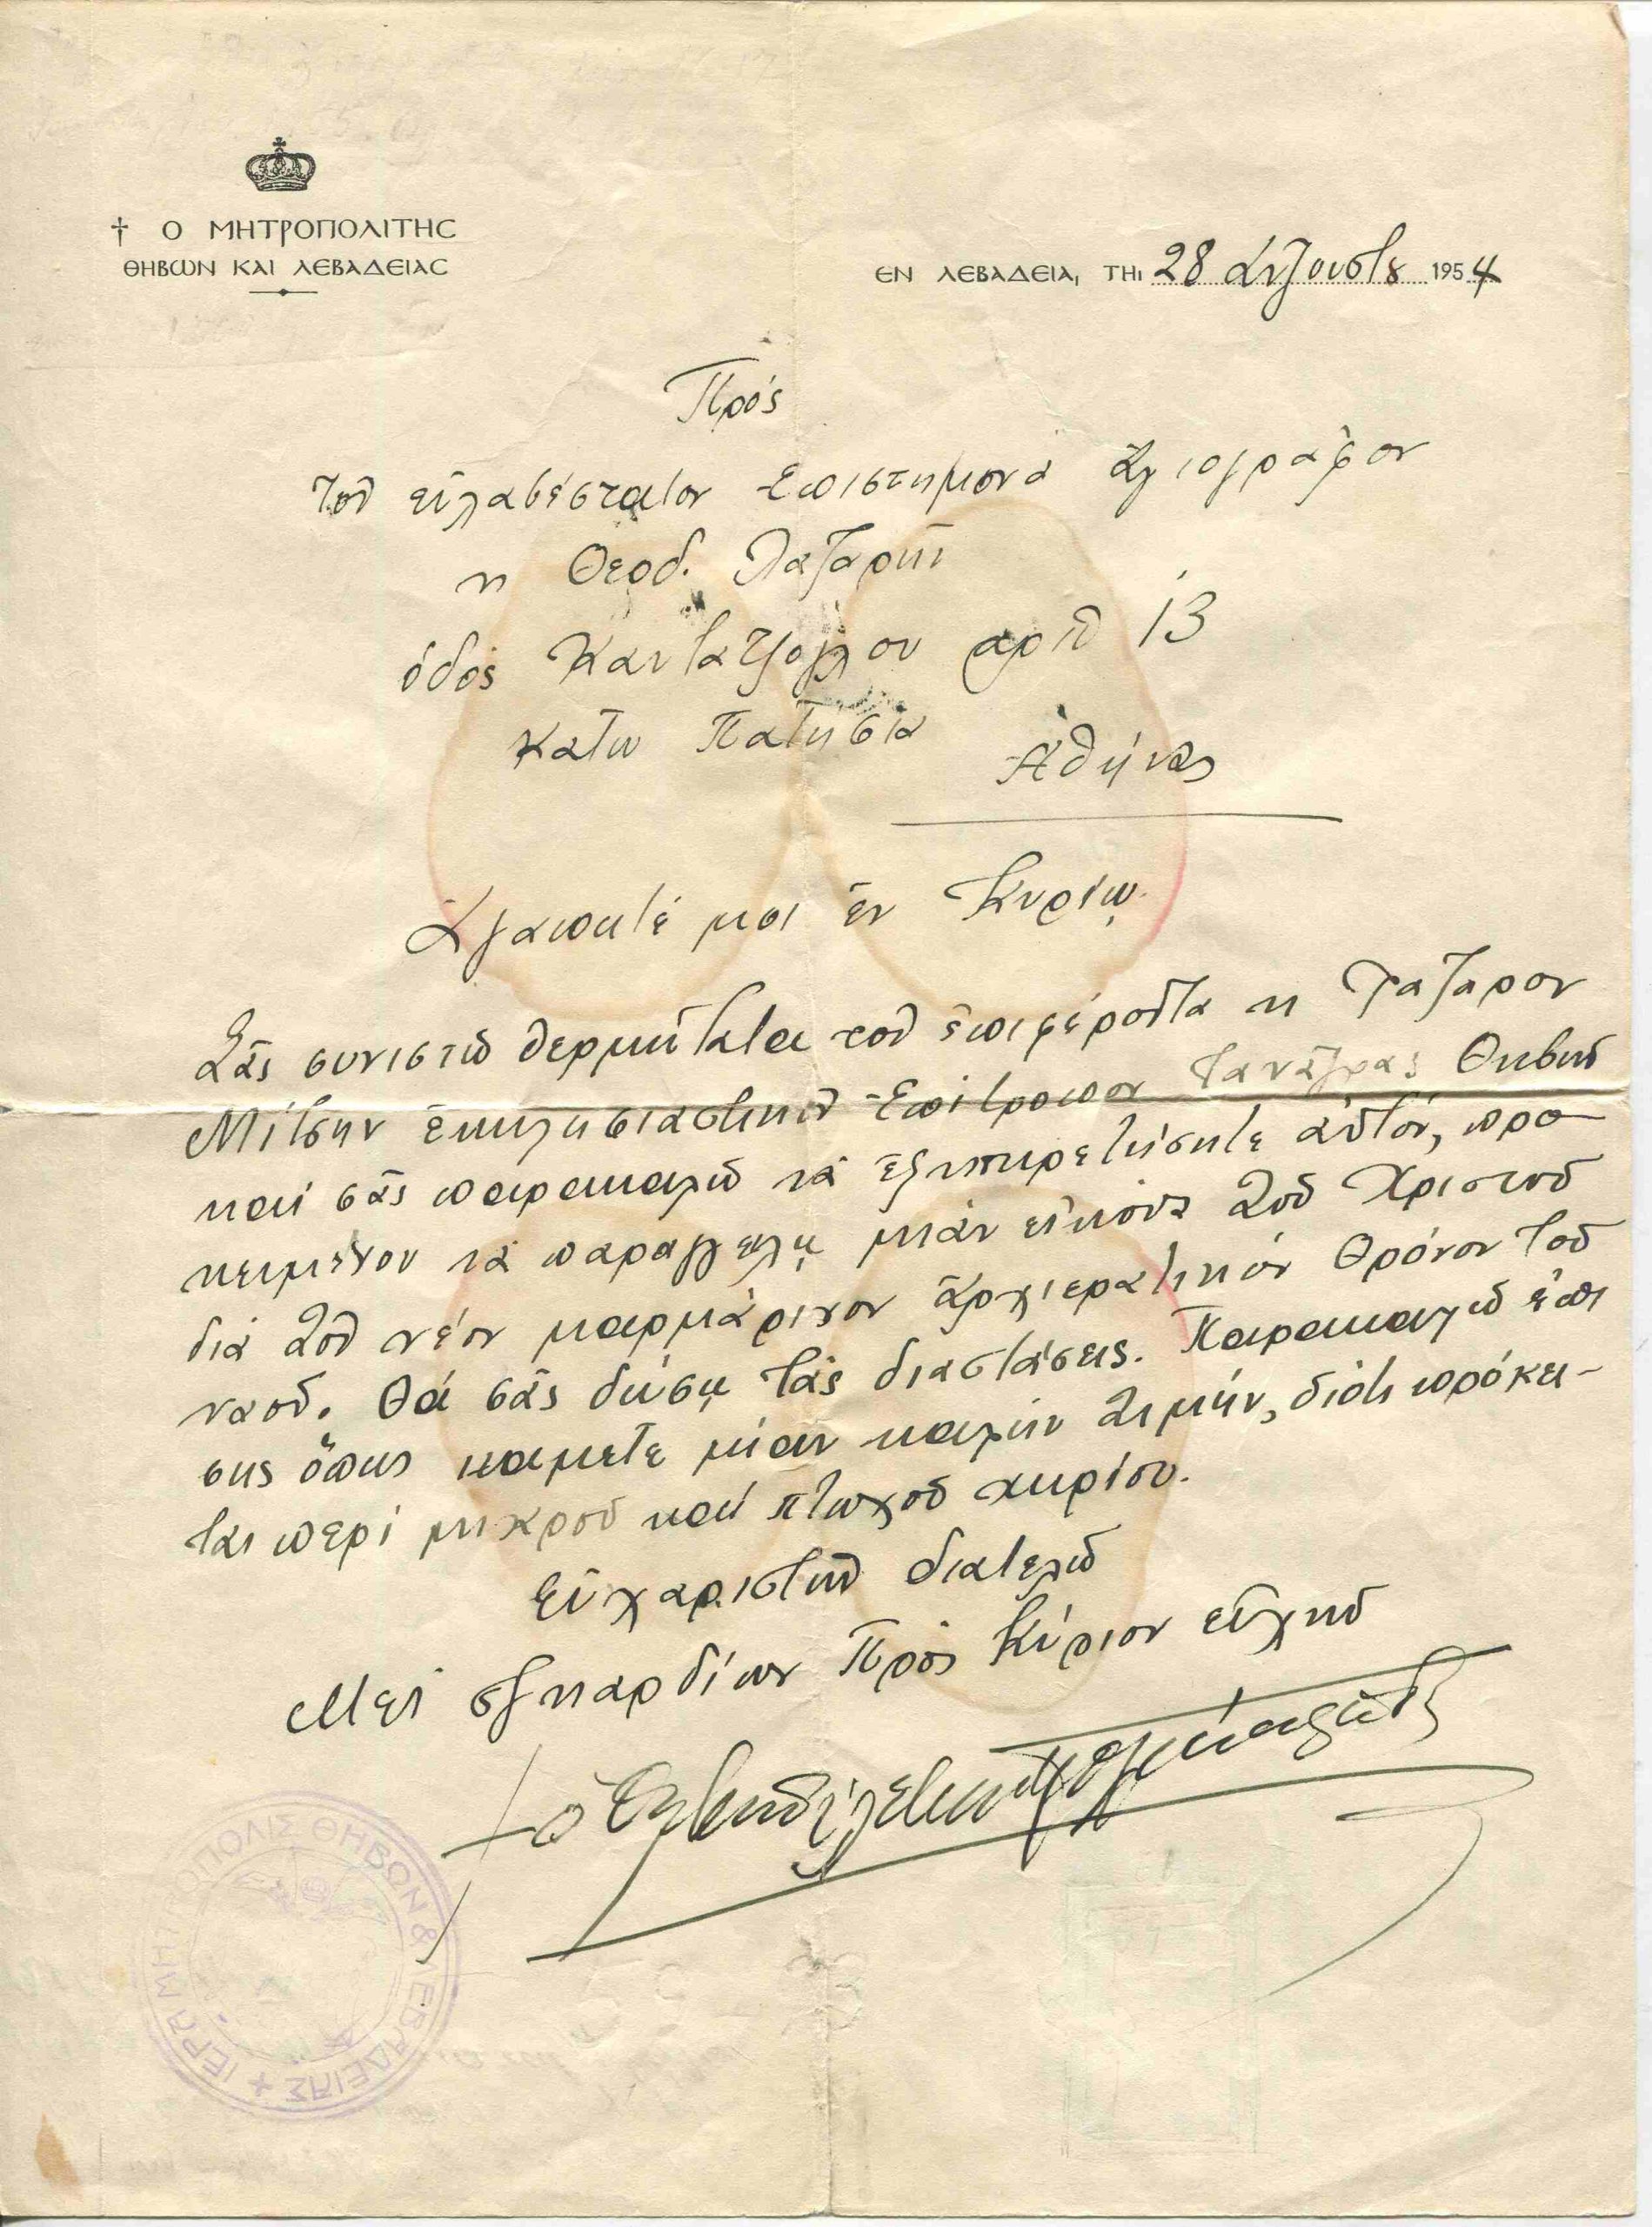 † Ο ΜΗΤΡΟΠΟΛΙΤΗΣ
ΘΗΒΩΝ ΚΑΙ ΛΕΒΑΔΕΙΑΣ
ΕΝ ΛΕΒΑΔΕΙΑι ΤΗι 28 Αὐγούστου 1954
Πρός
Τὸν εὐλαβέστατον Ἐπιστήμονα ἁγιογράφον
κ Θεοδ. Λαζαρῆ
ὁδὸς Καυτατζόγλου ἀριθ 13
Κάτω Πατήσια
Ἀθήνας
Ἀγαπητέ μοι ἐν Κυρίῳ
Σᾶς συνιστῶ θερμότατα τὸν ἐπιφέροντα κ Λάζαρον
Μίτσην ἐκκλησιαστικὸν Ἐπίτροπον Τανάγρας Θηβῶν
καί σᾶς παρακαλῶ νὰ ἐξυπηρετήσητε αὐτόν, προ-
κειμένου νὰ παραγγείλῃ μιὰν εἰκόνα τοῦ Χριστοῦ
διὰ τὸν νέον μαρμάρινον ἀρχιερατικὸν θρόνον τοῦ
ναοῦ. Θά σᾶς δώσῃ τὰς διαστάσεις. Παρακαλῶ ἐπί
σης ὅπως κάμετε μίαν καλήν τιμήν, διότι πρόκει-
ται περί μικροῦ καί πτωχοῦ χωρίου.
Εὐχαριστῶν διατελῶ
Μετ' ἐγκαρδίων Πρὸς Κύριον εὐχῶν
† ὁ Θηβῶν & Λεβαδείας Πολύκαρπος
ΙΕΡΑ ΜΗΤΡΟΠΟΛΙΣ ΘΗΒΩΝ & ΛΕΒΑΔΕΙΑΣ